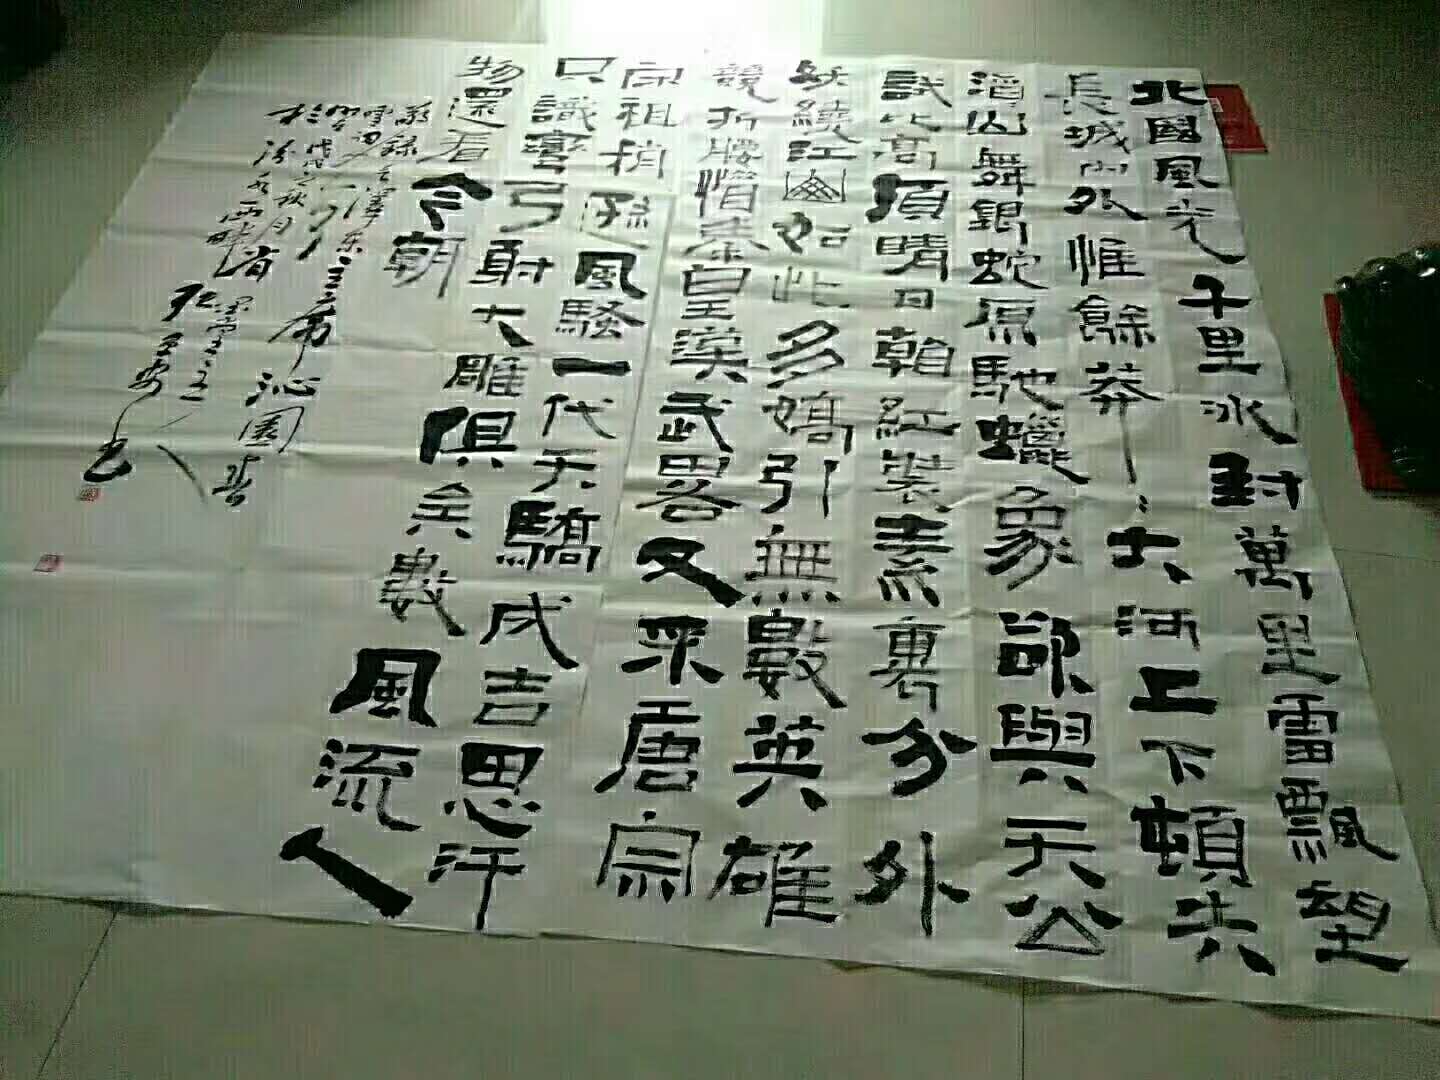 北國風光千里冰封萬里雪飄望
長城内外惟餘莽〻大河上下頓失
滔山舞銀蛇原馳蠟象欲與天公
試比高須晴日紅裝素裹分外
繞江如此多嬌引無數英雄
競折腰惜秦皇漢武畧又采唐宗
宋祖稍遜風騷一代天驕成吉思汗
只識彎弓射大雕俱矣數風流人
物還看今朝
敬錄毛澤东主席沁園春
雪戊戌之秋月
於汾水西畔